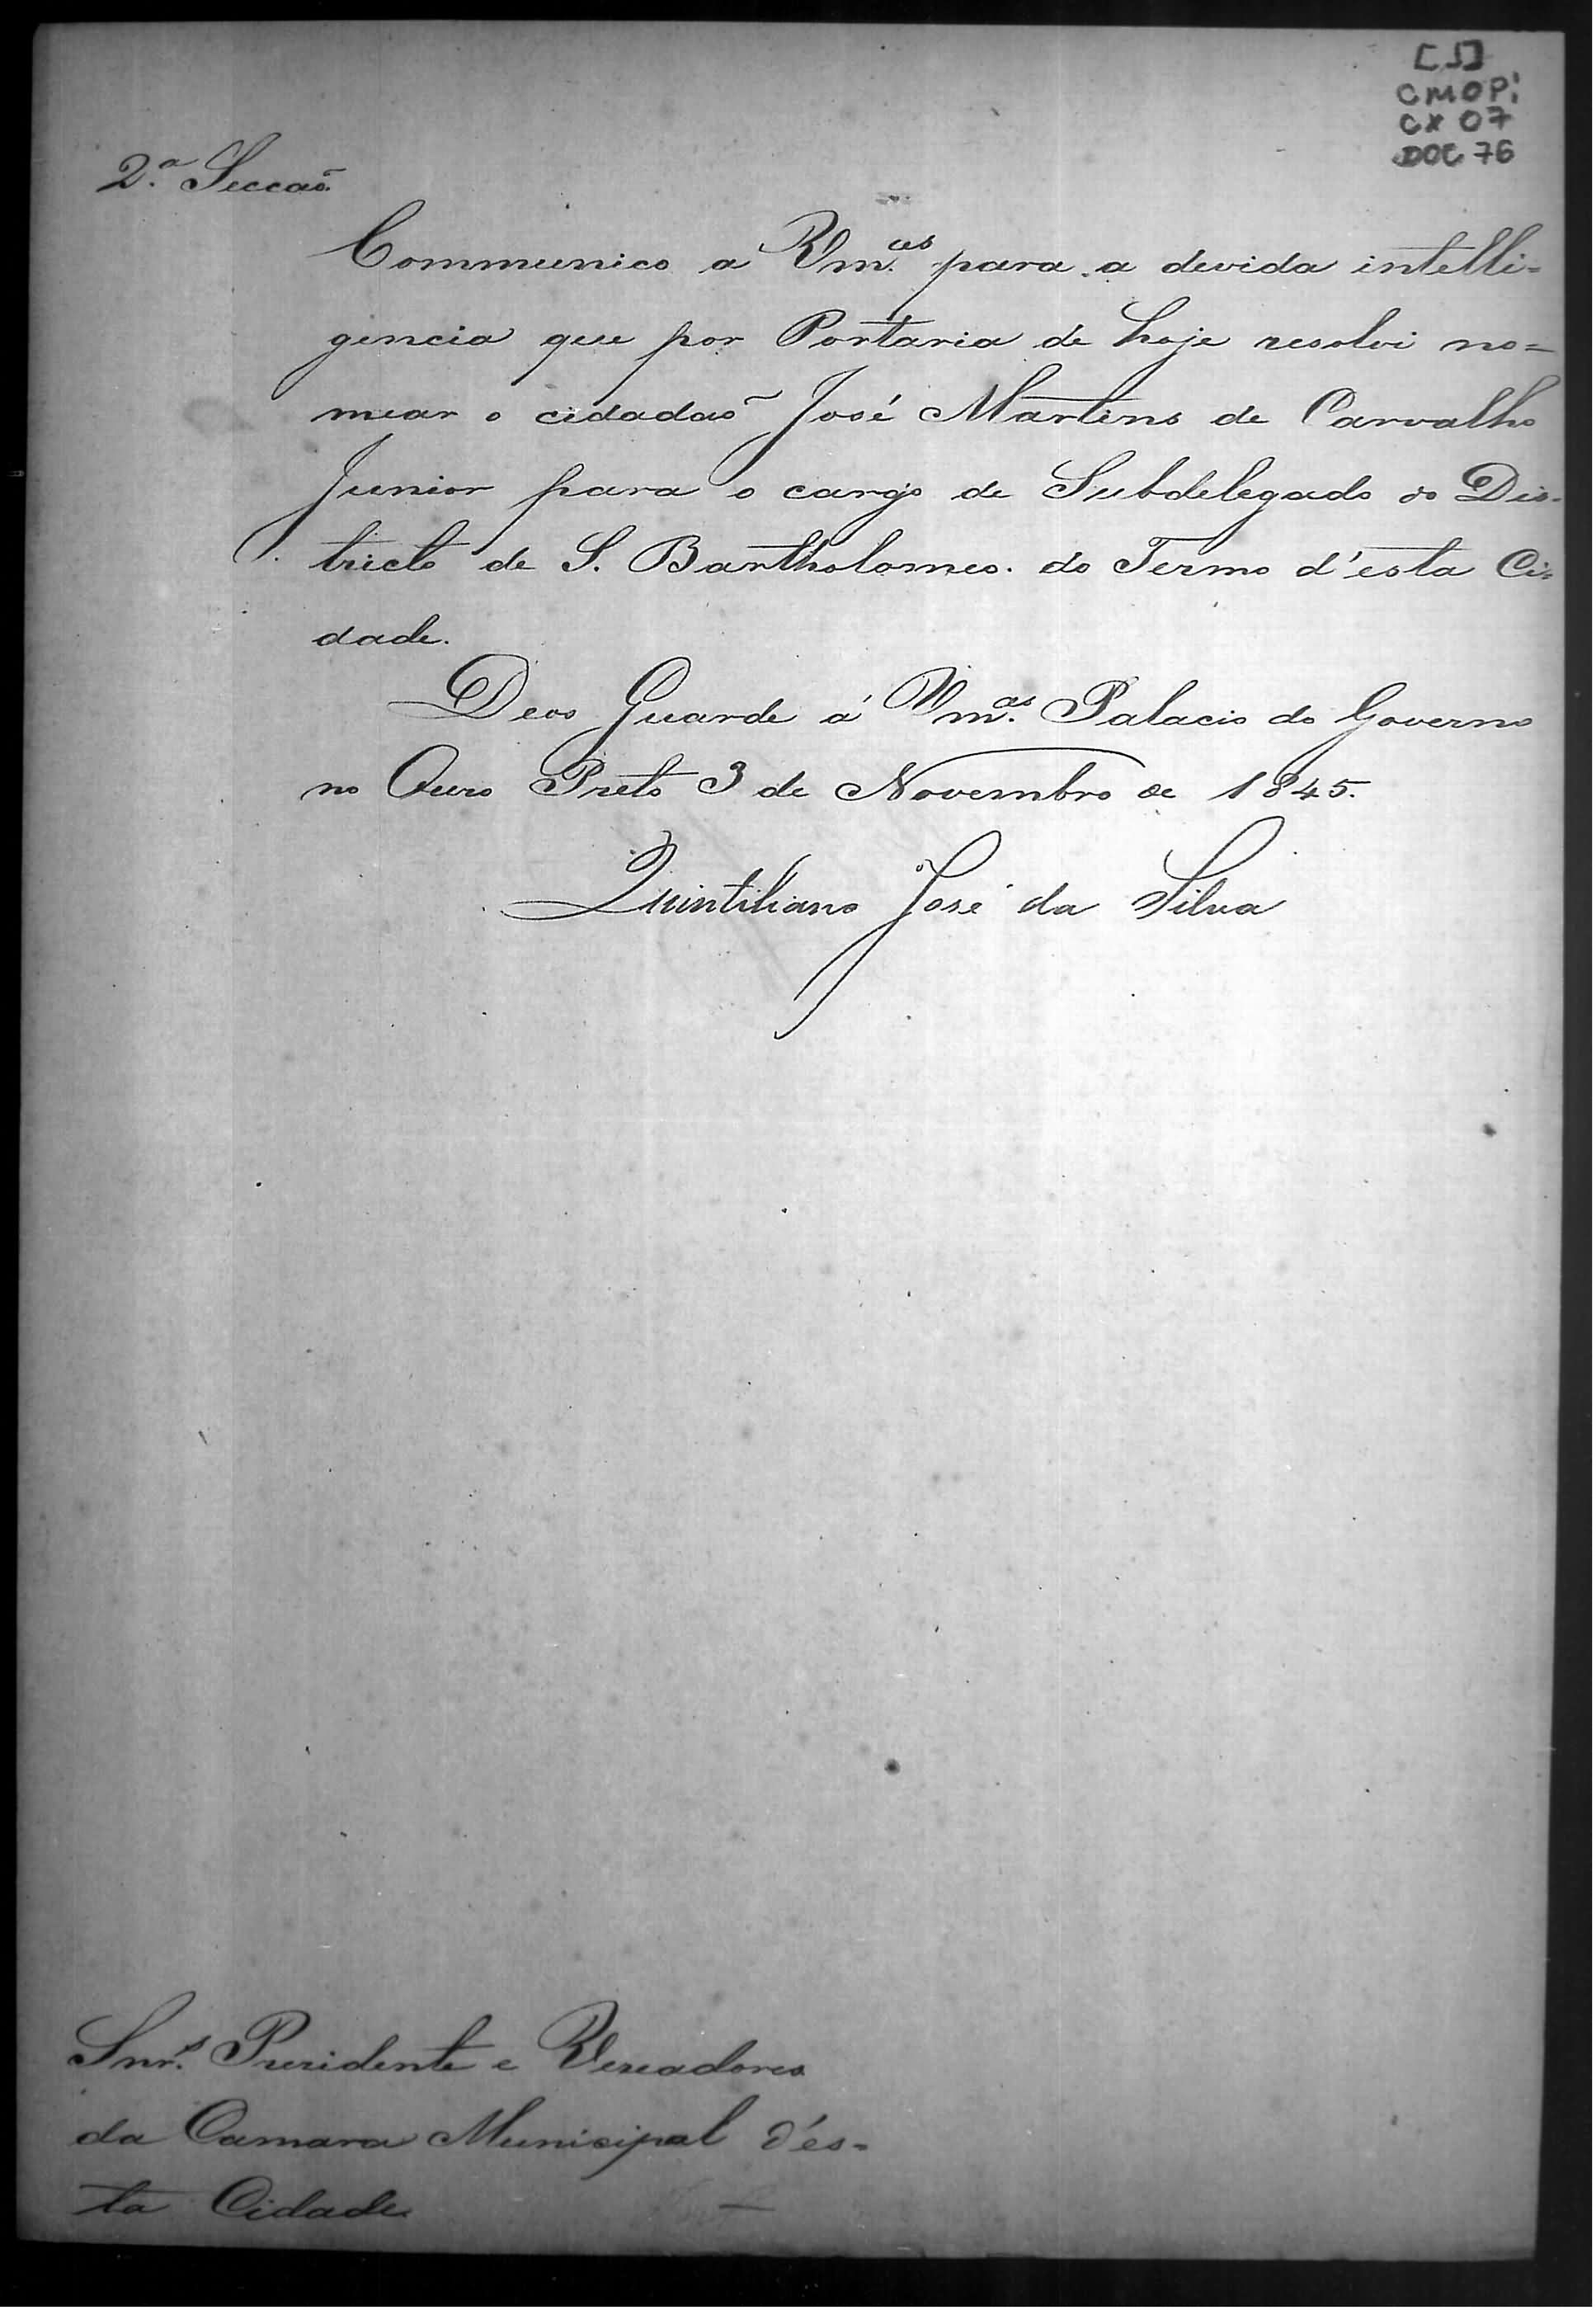 [J]
CMOPi
CX 07
DOC 76
2.ª Seccaõ
Communico a Vm.ces para a devida intelli=
gencia que por Portaria de hoje resolvi no=
mear o cidadaõ José Martins de Carvalho
Junior para o cargo de Subdelegado do Dis-
tricto de S. Bartholomeo. do Termo d'esta Ci=
dade.
Deos Guarde á Vm.ces Palacio do Governo
no Ouro Preto 3 de Novembro de 1845.
Quintiliano José da Silva
Snr.s Presidente e Vereadores
da Camara Municipal d'es=
ta Cidade